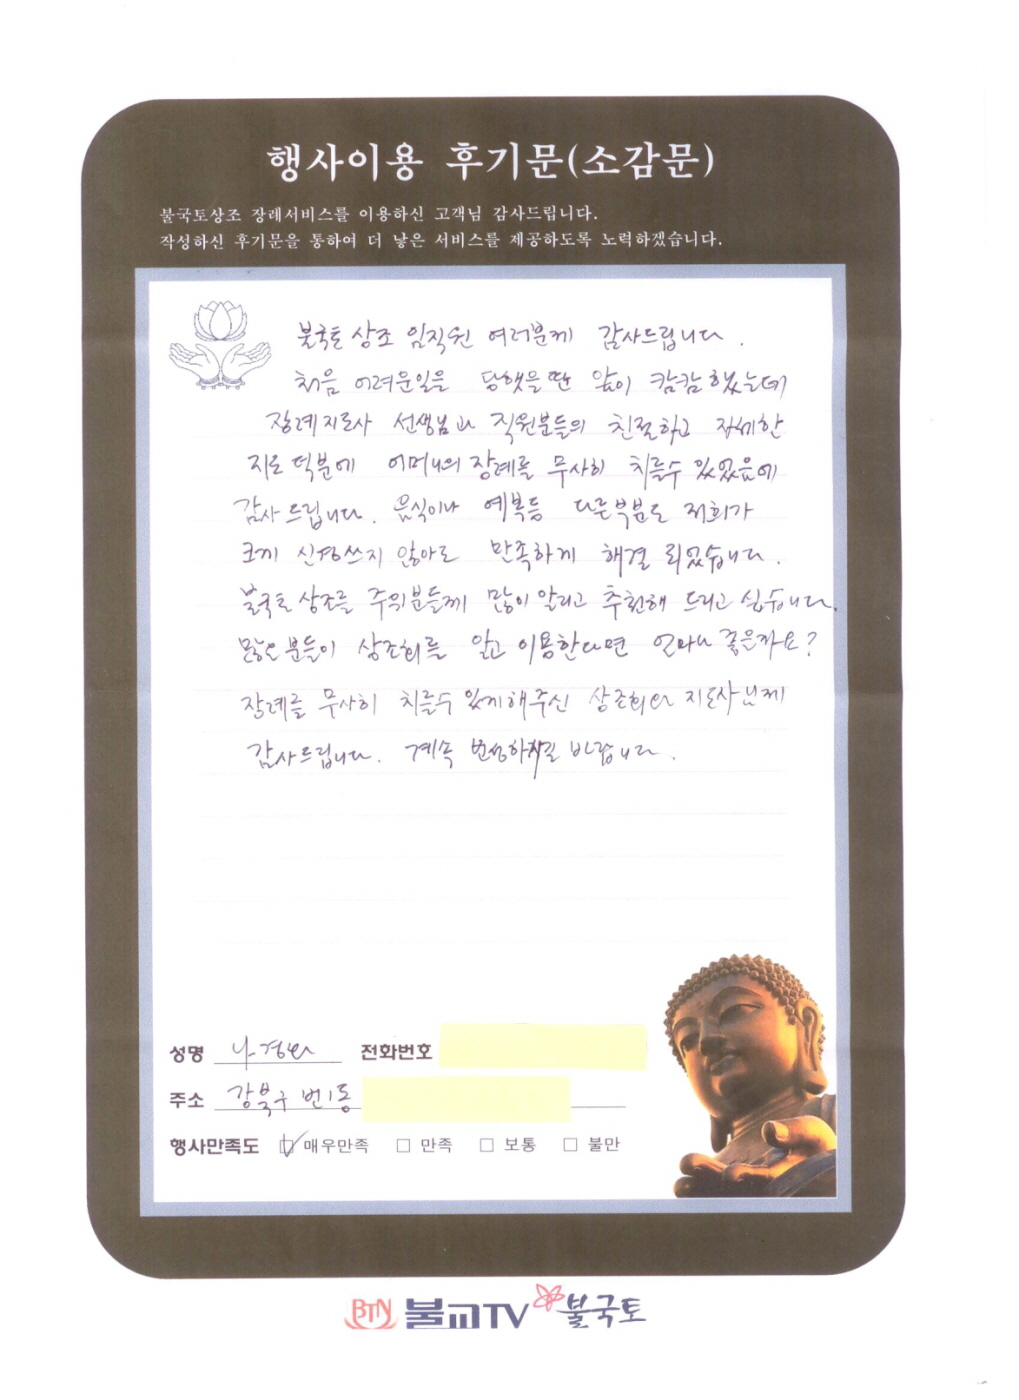 행사이용 후기문(소감문)
불국토상조 장례서비스를 이용하신 고객님 감사드립니다.
작성하신 후기문을 통하여 더 낳은 서비스를 제공하도록 노력하겠습니다.
불국토 상조 임직원 여러분께 감사드립니다.
처음 어려운일을 당했을 땐 앞이 캄캄했는데
장례지도사 선생님과 직원분들의 친절하고 자세한
지도 덕분에 어머니의 장례를 무사히 치를수 있었음에
감사드립니다. 음식이나 예복등 다른부분도 저희가
크게 신경쓰지 않아도 만족하게 해결 되었습니다.
불국토 상조를 주위분들께 많이 알리고 추천해 드리고 싶습니다.
많은 분들이 상조회를 알고 이용한다면 얼마나 좋을까요?
장례를 무사히 치를수 있게해주신 상조회와 지도사님께
감사드립니다. 계속 번성하시길 바랍니다.
성명 전화번호
주소 강북구 번1동
행사만족도 매우만족 만족 보통 불만
BTN 불교TV 불국토